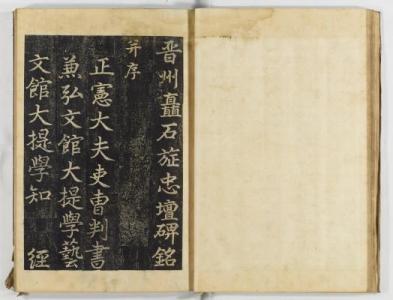 晋州矗石旌忠壇碑銘
并序
正憲大夫吏曹判書
兼弘文館大提學藝
文館大提學知 經